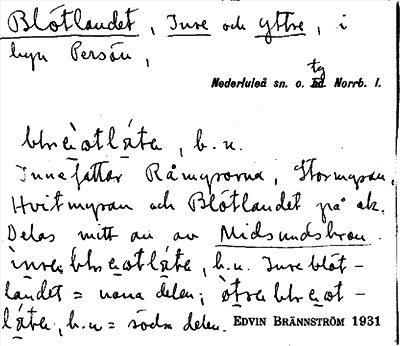 Blötlandet, Inre och yttre, i
byn Persön,
Nederluleå sn. o. tg Norrb. l.
b.n.
Innefattar Råmyrorna, Stormyran,
Hvitmyran och Blötlandet på ek.
Delas mitt av av Midsundsbron.
b.n. Inre blöt-
landet = norra delen;
b.n = södra delen. EDVIN BRÄNNSTRÖM 1931